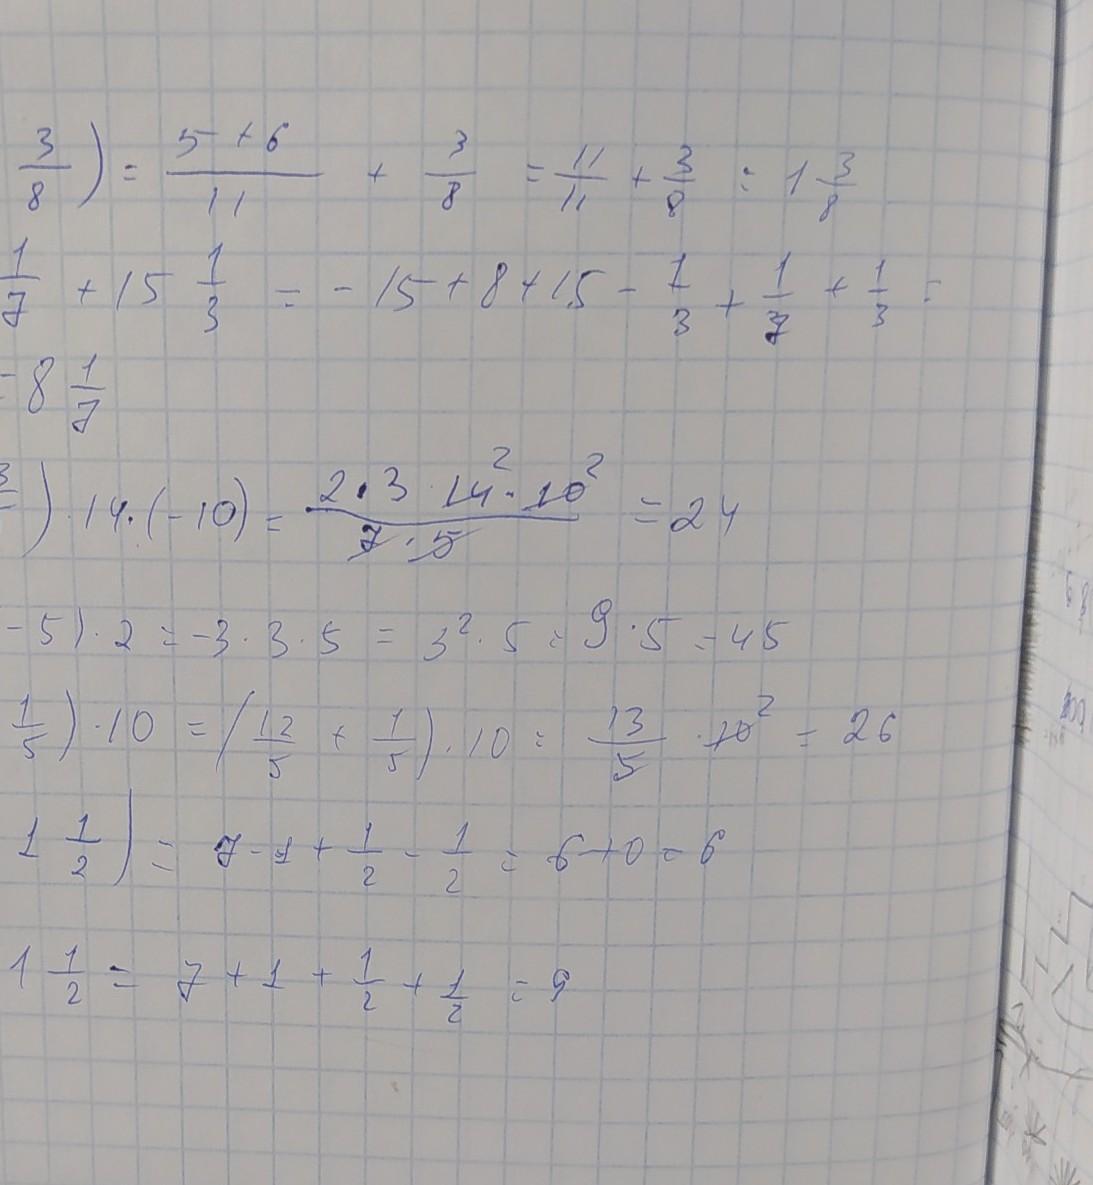 3/8) = (5 + 6)/11 + 3/8 = 11/11 + 3/8 = 1 3/8
1/7 + 15 1/3 = - 15 + 8 + 15 - 1/3 + 1/7 + 1/3 =
= 8 1/7
) · 14 · (-10) = (2 · 3 · 14² · 10²)/(7 · 5) = 24
- 5) · 2 = -3 · 3 · 5 = 3² · 5 = 9 · 5 = 45
1/5) · 10 = (12/5 + 1/5) · 10 = 13/5 · 10² = 26
1 1/2) = 7 - 1 + 1/2 - 1/2 = 6 + 0 = 6
1 1/2 = 7 + 1 + 1/2 + 1/2 = 9